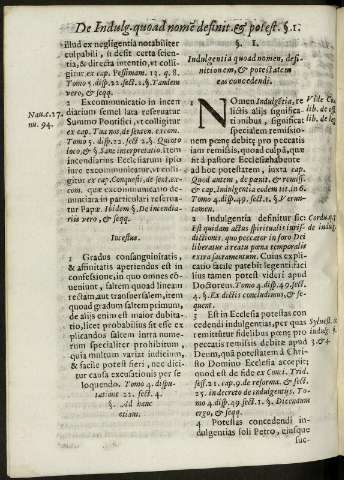 De Indulg. quoad nomē definit. & potest. §. 1.
illud ex negligentia notabiliter
culpabili, si desit certa scien-
tia, & directa intentio, vt colli-
gitur ex cap. Pessimam. 23. q. 8.
Tomo 5. disp. 22. sect. 1. §. Tandem
vero, & seqq.
Nauar. 27.
nu. 94.
2 Excommunicatio in incen
diarium semel lata reseruatur
Summo Pontifici, vt colligitur
ex cap. Tua nos, de senten. excom.
Tomo 5. disp. 22. sect. 2. §. Quarto
loco, & §. Sane interpretatio, item
incendiarius Ecclesiarum ipso
iure excommunicatur, vt col-
ligitur ex cap. Conquesti, de sent. ex-
com. quæ excommunicatio de-
nunciata in particulari reserua-
tur Papæ. Ibidem §. De incendia-
riis vero, & seqq.
Incestus.
1 Gradus consanguinitatis,
& affinitatis aperiendus est in
confessione, in quo omnes cō-
ueniunt, saltem quoad lineam
rectam, aut transuersalem, item
quoad gradum saltem primum,
de aliis enim est maior dubita-
tio, licet probabilius sit esse ex
plicandos saltem intra nume-
rum specialiter prohibitum,
quia multum variat iudicium,
& facile potest fieri, nec dici-
tur causa excusationis per se
loquendo. Tomo 4. dispu-
tatione 22. sect. 4.
§. Ad hanc
etiam.
§. 1.
Indulgentia quoad nomen, defi-
nitionem, & potestatem
eas concedendi.
1 NOmen Indulgētia, re
lictis aliis significa-
tionibus, significat
specialem remissio-
nem pœnæ debitæ pro peccatis
iam remissis, quoad culpā, vt fa-
cit à pastore Ecclesiæ habente
ad hoc potestatem, iuxta cap.
Quod autem, de pœnit. & remiss.
& cap. Indulgentia eodem tit. in 6.
Tomo 4. disp. 49. sect. 1. §. Verum-
tamen.
2 Indulgentia definitur sic:
Est quidam actus spiritualis iuris-
dictionis, quo peccator in foro Dei
liberatur à reatu pœnæ temporalis
extra sacramentum. Cuius expli-
catio facile patebit legenti: faci
lius tamen potest videri apud
Doctorem. Tomo 4. disp. 49. sect.
4. §. Ex dictis concludimus, & se-
quent.
3 Est in Ecclesia potestas con
cedendi indulgentias, per quas
remittitur fidelibus pœna pro
peccatis remissis debita apud
Deum, quā potestatem à Chri-
sto Domino Ecclesia accepit;
quod est de fide ex Conci. Trid.
sess. 21. cap. 9. de reforma. & sect.
25. in decreto de indulgentijs. To-
mo 4. disp. 49. sect. 1. §. Dicendum
ergo, & seqq.
4 Potestas concedendi in-
dulgentias soli Petro, eiusque
suc-